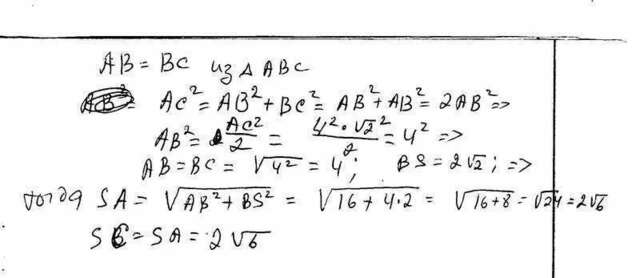 AB = BC из △ ABC
AC² = AB² + BC² = AB² + AB² = 2AB² =>
AB² = AC²/2 = 4²·√2²/2 = 4² =>
AB = BC = √4² = 4; BS = 2√2; =>
тогда SA = √AB² + BS² = √16 + 4·2 = √16+8 = √24 = 2√6
SC = SA = 2√6